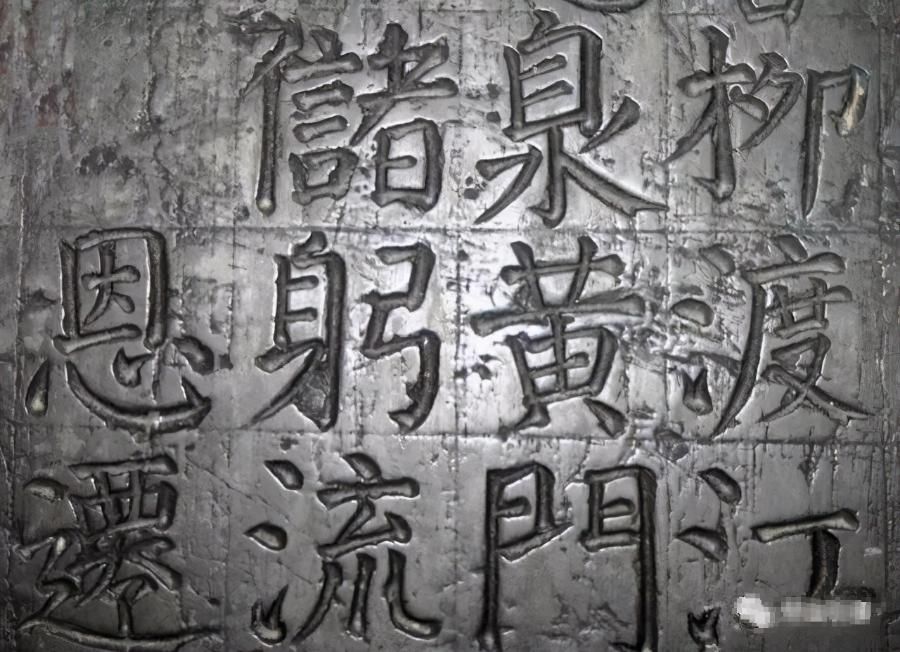 柳渡江
泉黄門
儲躬流
恩遷